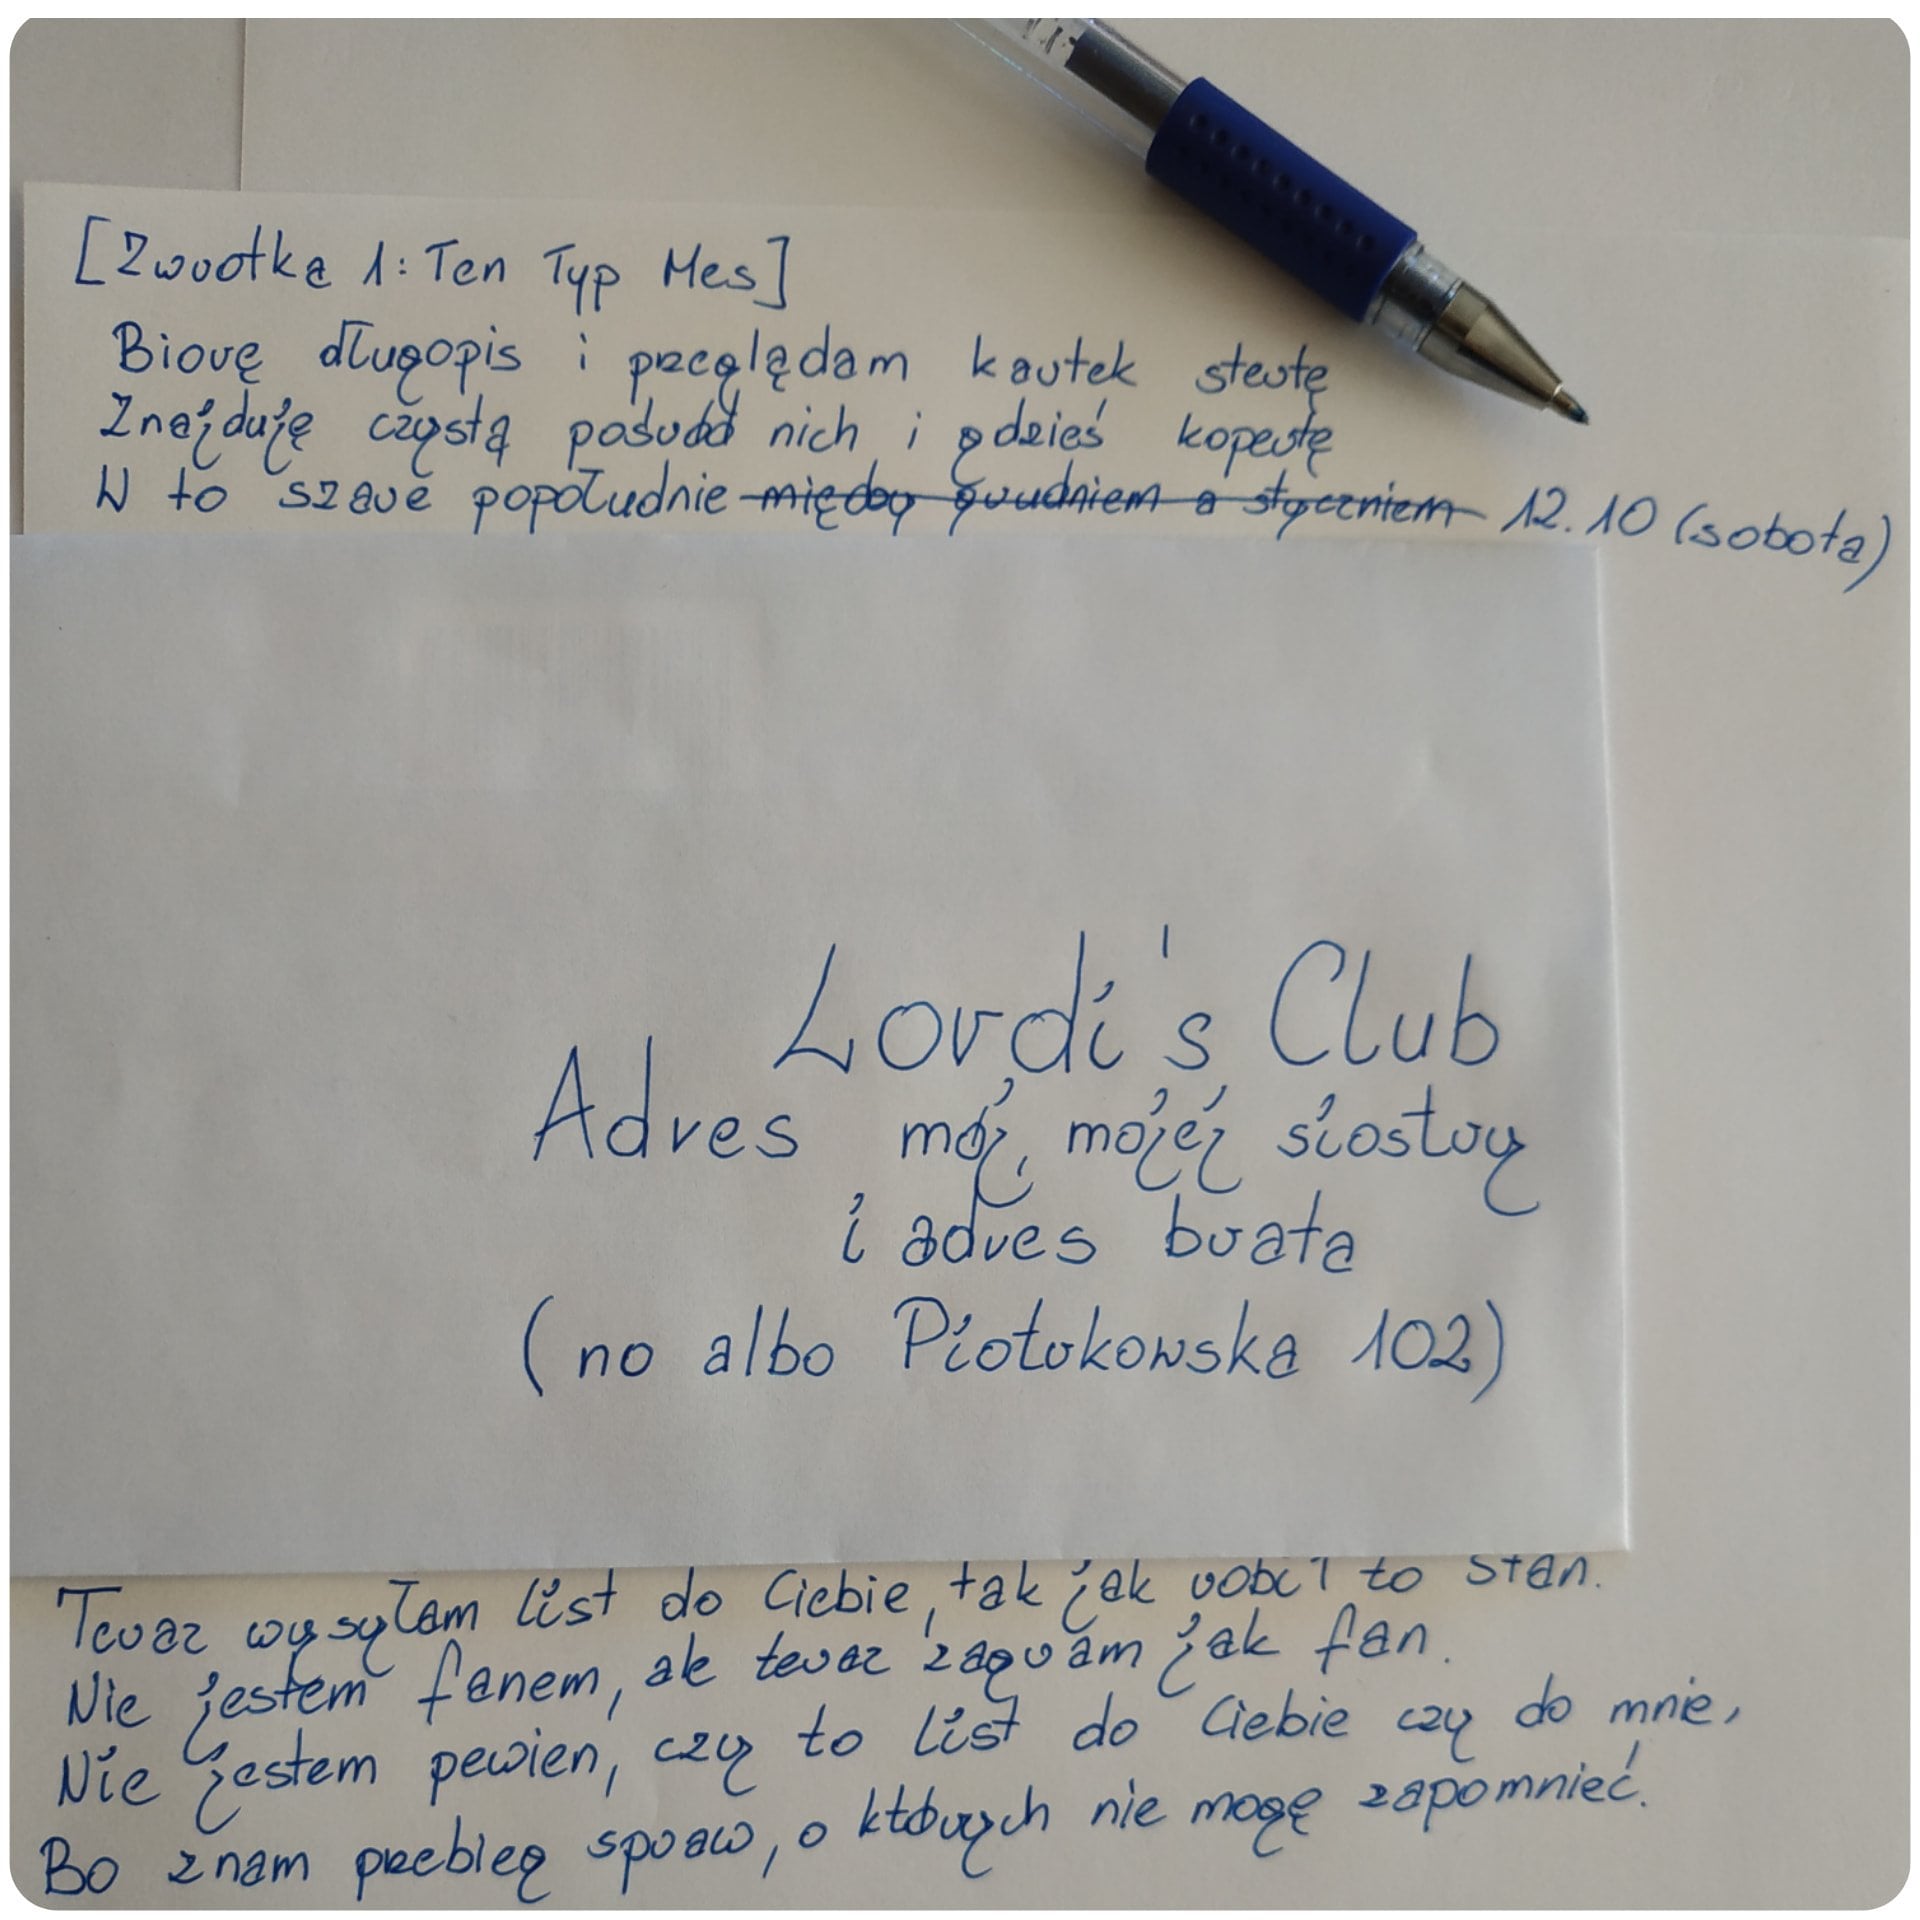 [Zwrotka 1: Ten Typ Mes]
Biorę długopis i przeglądam kartek stertę
Znajduję czystą pośród nich i gdzieś kopertę
W to szare popołudnie między grudniem a styczniem 12.10 (sobota)
Lordi's Club
Adres mój, mojej siostry
i adres brata
(no albo Piotrkowska 102)
Teraz wysyłam list do Ciebie, tak jak robił to Stan.
Nie jestem fanem, ale teraz zagram jak fan.
Nie jestem pewien, czy to list do Ciebie czy do mnie,
Bo znam przebieg spraw, o których nie mogę zapomnieć.